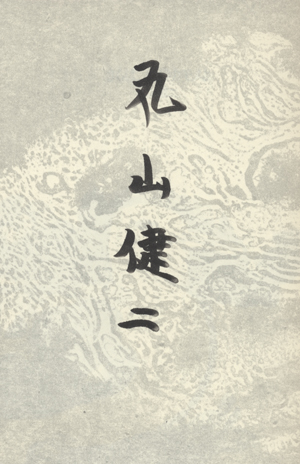 丸山健二